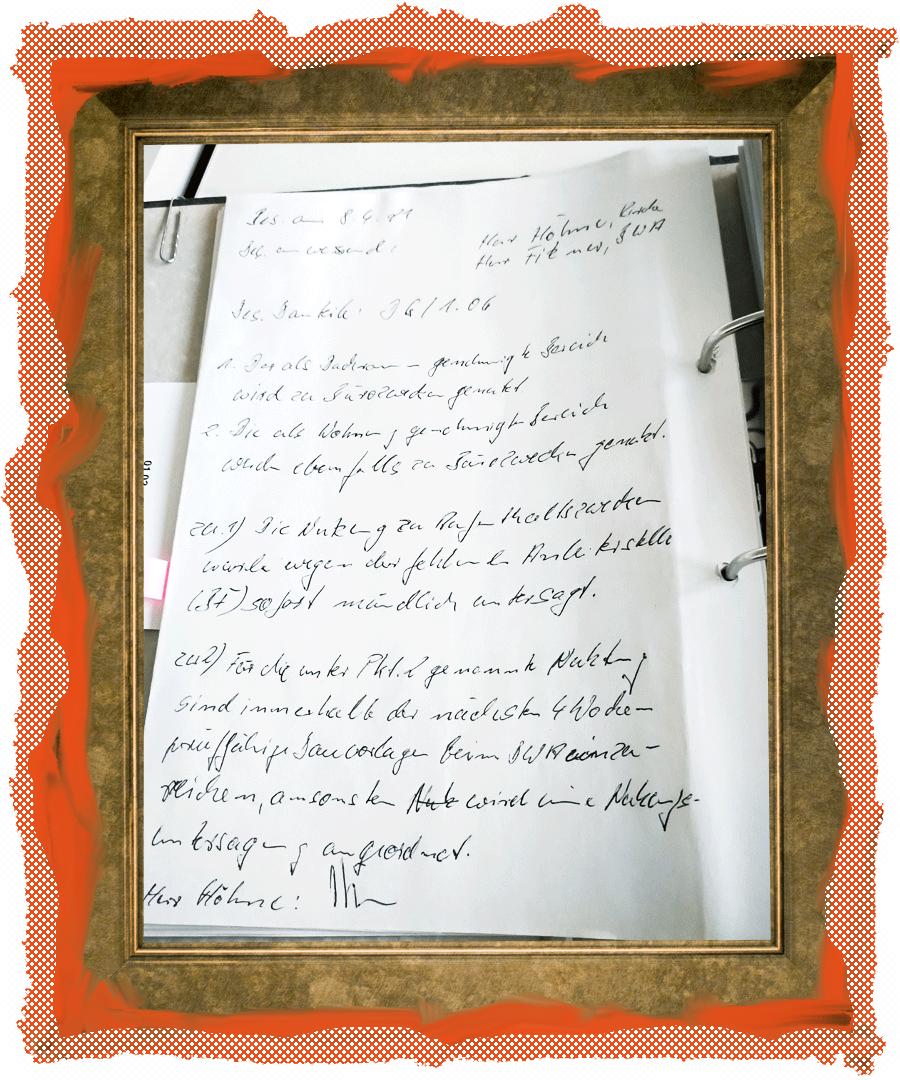 Bes. am 8.4.
Bes. anwesend: Herr Höhne,
Herr Fitzner, BWA
Bes.
1. Der als genehmigte Bereich
wird zu Bürozwecken genutzt.
2. Die als Wohnung genehmigten Bereich
werden ebenfalls zu Bürozwecken genutzt.
zu 1) Die Nutzung zu Aufenthaltszwecken
wurde wegen der fehlenden
sofort mündlich untersagt.
zu 2) Für die unter Pkt. 2 genannte Nutzung
sind innerhalb der nächsten 4 Wochen
prüffähige Bauvorlagen beim BWA einzu-
reichen, ansonsten wird eine Nutzungs-
untersagung angeordnet.
Herr Höhne:
01.02